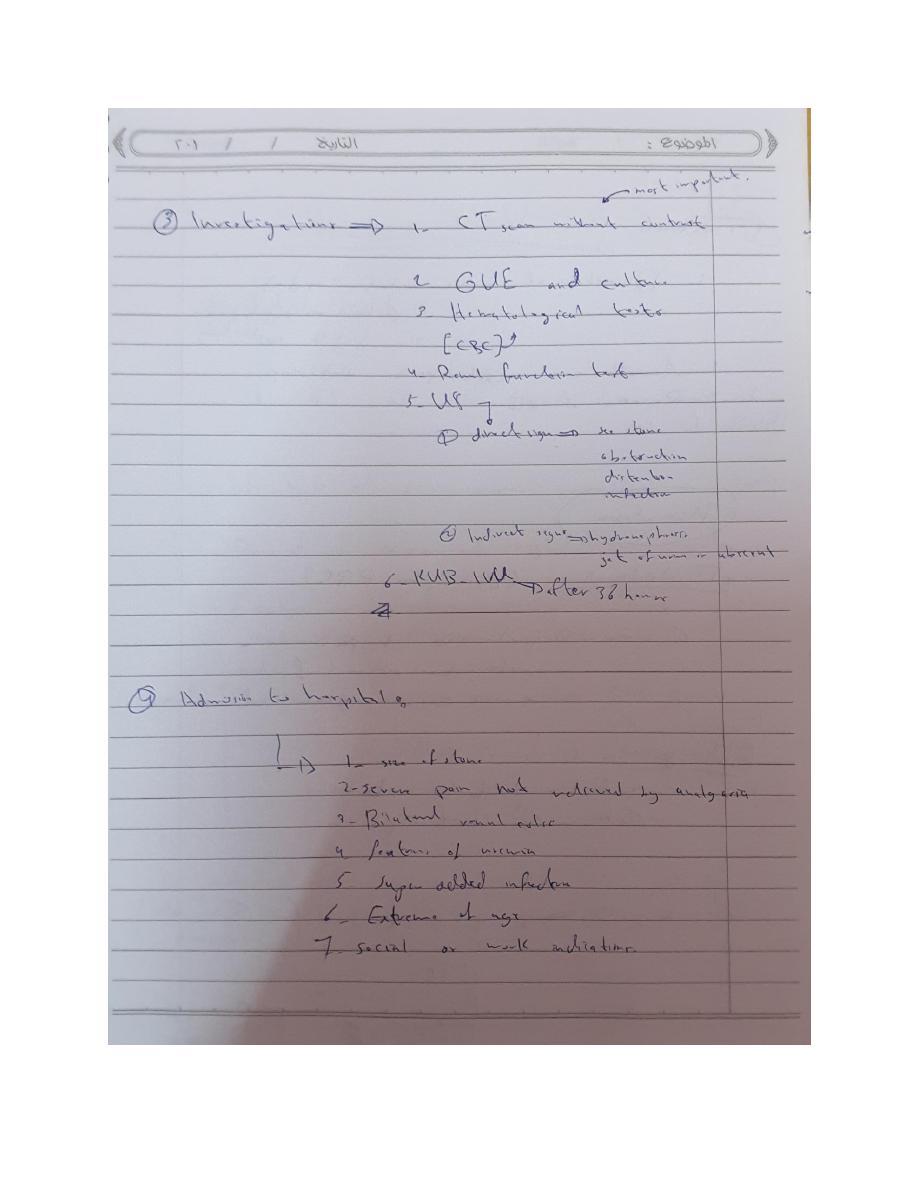 الموضوع : التاريخ / / ٢٠١
most important.
③ Investigations ⇒ 1- CT scan without contrast
2 GUE and culture
3 Hematological tests
[CBC]
4- Renal function test
5- US
① direct sign ⇒ see stone
obstruction
distention
infection
② Indirect signs ⇒ hydronephrosis
jet of urine
6- KUB - IVU → after 36 hours
④ Admission to hospital:
1- size of stone
2- severe pain not relieved by analgesia
3- Bilateral renal colic
4 features of uremia
5 Super added infection
6- Extreme of age
7- social or work indications